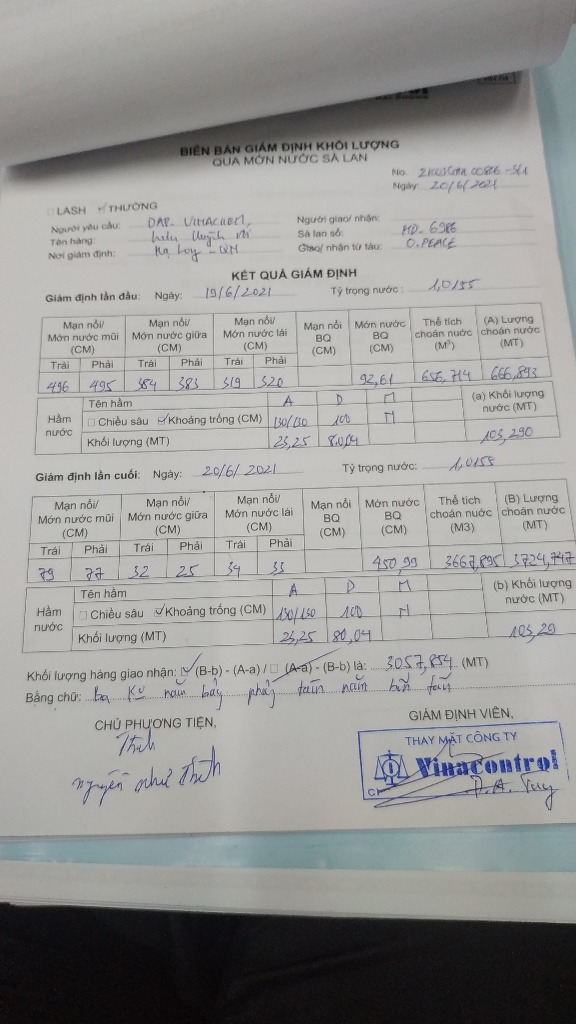 BIÊN BẢN GIÁM ĐỊNH KHỐI LƯỢNG
QUA MỚN NƯỚC SÀ LAN
No.
Ngày: 20/6/2021
LASH THƯỜNG
Người yêu cầu: DAP-VINACHEM Người giao/ nhận:
Tên hàng: Sà lan số: HD-6986
Nơi giám định: Hạ Long - QN Giao/ nhận từ tàu: O.PEACE
KẾT QUẢ GIÁM ĐỊNH
Giám định lần đầu: Ngày: 19/6/2021 Tỷ trọng nước: 1,0155
Mạn nổi/ Mớn nước mũi (CM) Mạn nổi/ Mớn nước giữa (CM) Mạn nổi/ Mớn nước lái (CM) Mạn nổi BQ (CM) Mớn nước BQ (CM) Thể tích choán nước (M³) (A) Lượng choán nước (MT)
Trái Phải Trái Phải Trái Phải
496 495 384 383 319 320 92,61 656,714 666,893
Hầm nước Tên hầm A D M (a) Khối lượng nước (MT)
Chiều sâu Khoảng trống (CM) 130/130 100 M
Khối lượng (MT) 23,25 80,04 103,290
Giám định lần cuối: Ngày: 20/6/2021 Tỷ trọng nước: 1,0155
Mạn nổi/ Mớn nước mũi (CM) Mạn nổi/ Mớn nước giữa (CM) Mạn nổi/ Mớn nước lái (CM) Mạn nổi BQ (CM) Mớn nước BQ (CM) Thể tích choán nước (M3) (B) Lượng choán nước (MT)
Trái Phải Trái Phải Trái Phải
79 77 32 25 34 33 450,99 3667,895 3724,747
Hầm nước Tên hầm A D M (b) Khối lượng nước (MT)
Chiều sâu Khoảng trống (CM) 130/130 100 M
Khối lượng (MT) 23,25 80,04 103,29
Khối lượng hàng giao nhận: (B-b) - (A-a) / (A-a) - (B-b) là: 3057,854 (MT)
Bằng chữ: Ba
CHỦ PHƯƠNG TIỆN, GIÁM ĐỊNH VIÊN,
THAY MẶT CÔNG TY
Vinacontrol
Nguyễn Như